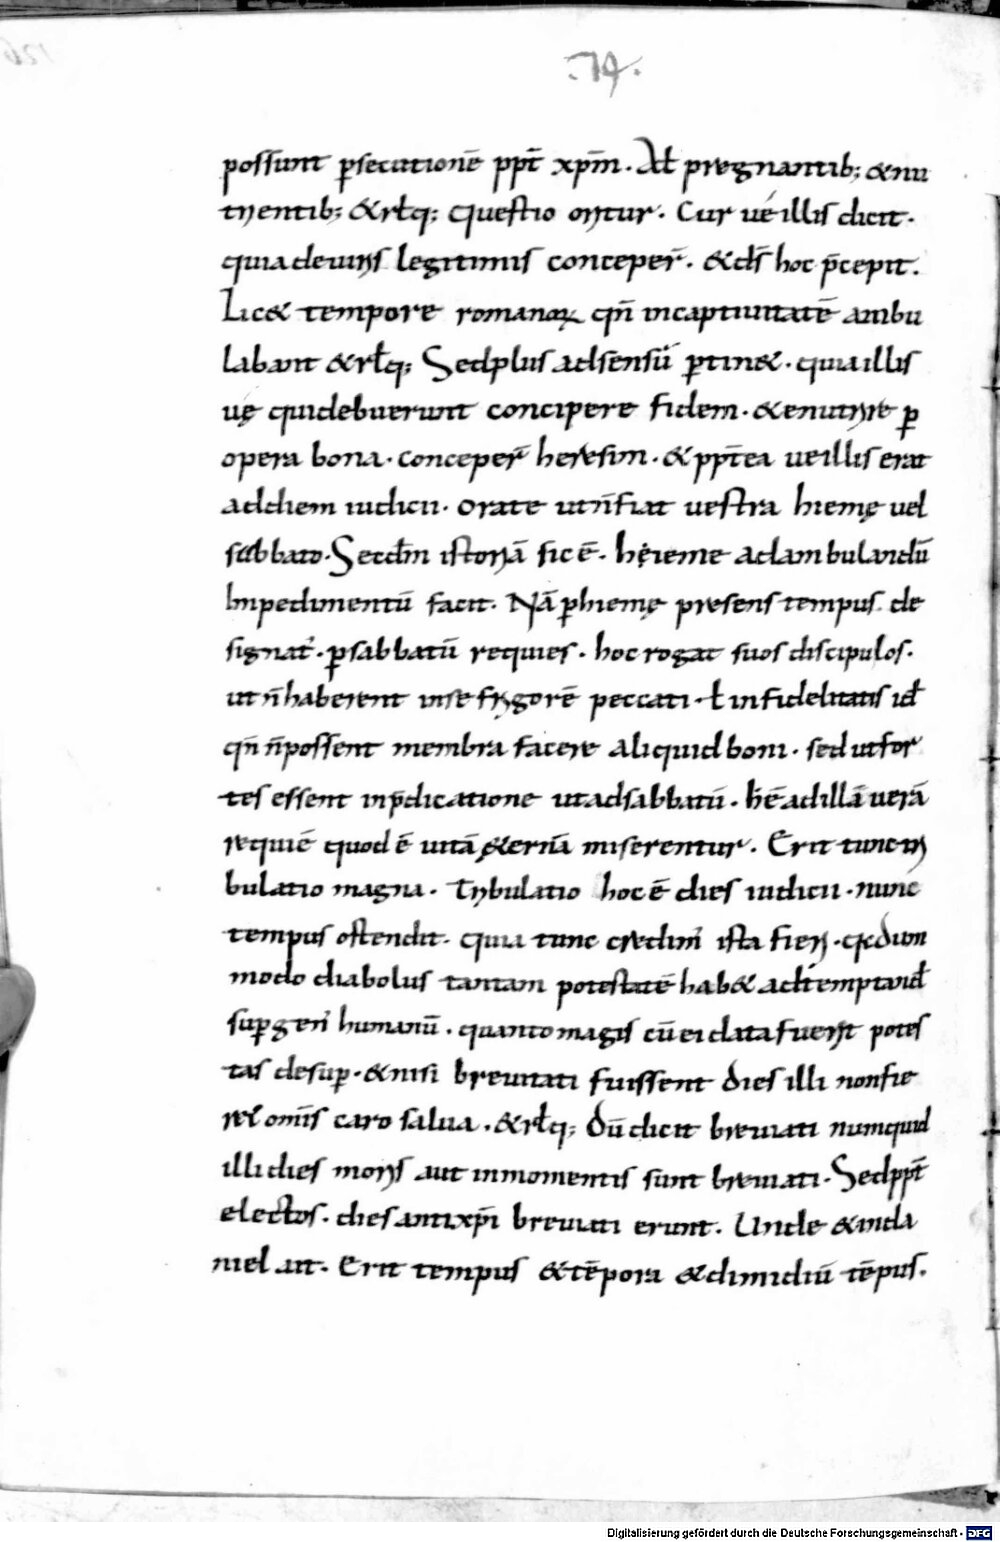 .74.
possunt p̱secutionē pp̄t xp̄m. Aƚ pregnantib; & nu
trientib; & rƚq; questio oritur. Cur ue illis dicit.
quia de uiris legitimis conceper̄. & dš hoc p̄cepit.
Lic& tempore romanoꝝ qn̄ in captiuitatē ambu
labant & rƚq; Sed plus ad sensū p̱tin&. quia illis
uę qui debuerunt concipere fidem. & enutrire p̱
opera bona. conceper̄ heresim. & pp̄tea ue illis erat
ad diem iudicii. orate ut n̄ fiat uestra hiemę uel
sabbato. Secdm̄ istoriā sic ē. hęieme ad ambulandū
Impedimentū facit. Nā p̱ hiemę presens tempus de
signat᷒. p̱ sabbatū requies. hoc rogat suos discipulos.
ut n̄ haberent in se frigorē peccati. ƚ infidelitatis id̄
qn̄ n̄ possent membra facere aliquid boni. sed ut for
tes essent in p̄dicatione ut ad sabbatū. h̄ ē ad illā uerā
requiē quod ē uitā &ernā miserentur. Erit tunc tri
bulatio magna. Tribulatio hoc ē dies iudicii. nunc
tempus ostendit. quia tunc credim᷒ ista fieri. q̱dum
modo diabolus tantam potestatē hab& ad temptand̄
sup̱ gen᷒ humanū. quanto magis cū ei data fuerit potes
tas desup̱. & nisi breuitati fuissent dies illi non fie
ret om̄is caro salua. & rƚq; Dū dicit breuiati numquid
illi dies moris aut in momentis sunt breuiati. Sed pp̄t
electos. dies antixp̄i breuiati erunt. Unde & in da
niel ait. Erit tempus & tēpora & dimidiū tēpus.
Digitalisierung gefördert durch die Deutsche Forschungsgemeinschaft - DFG